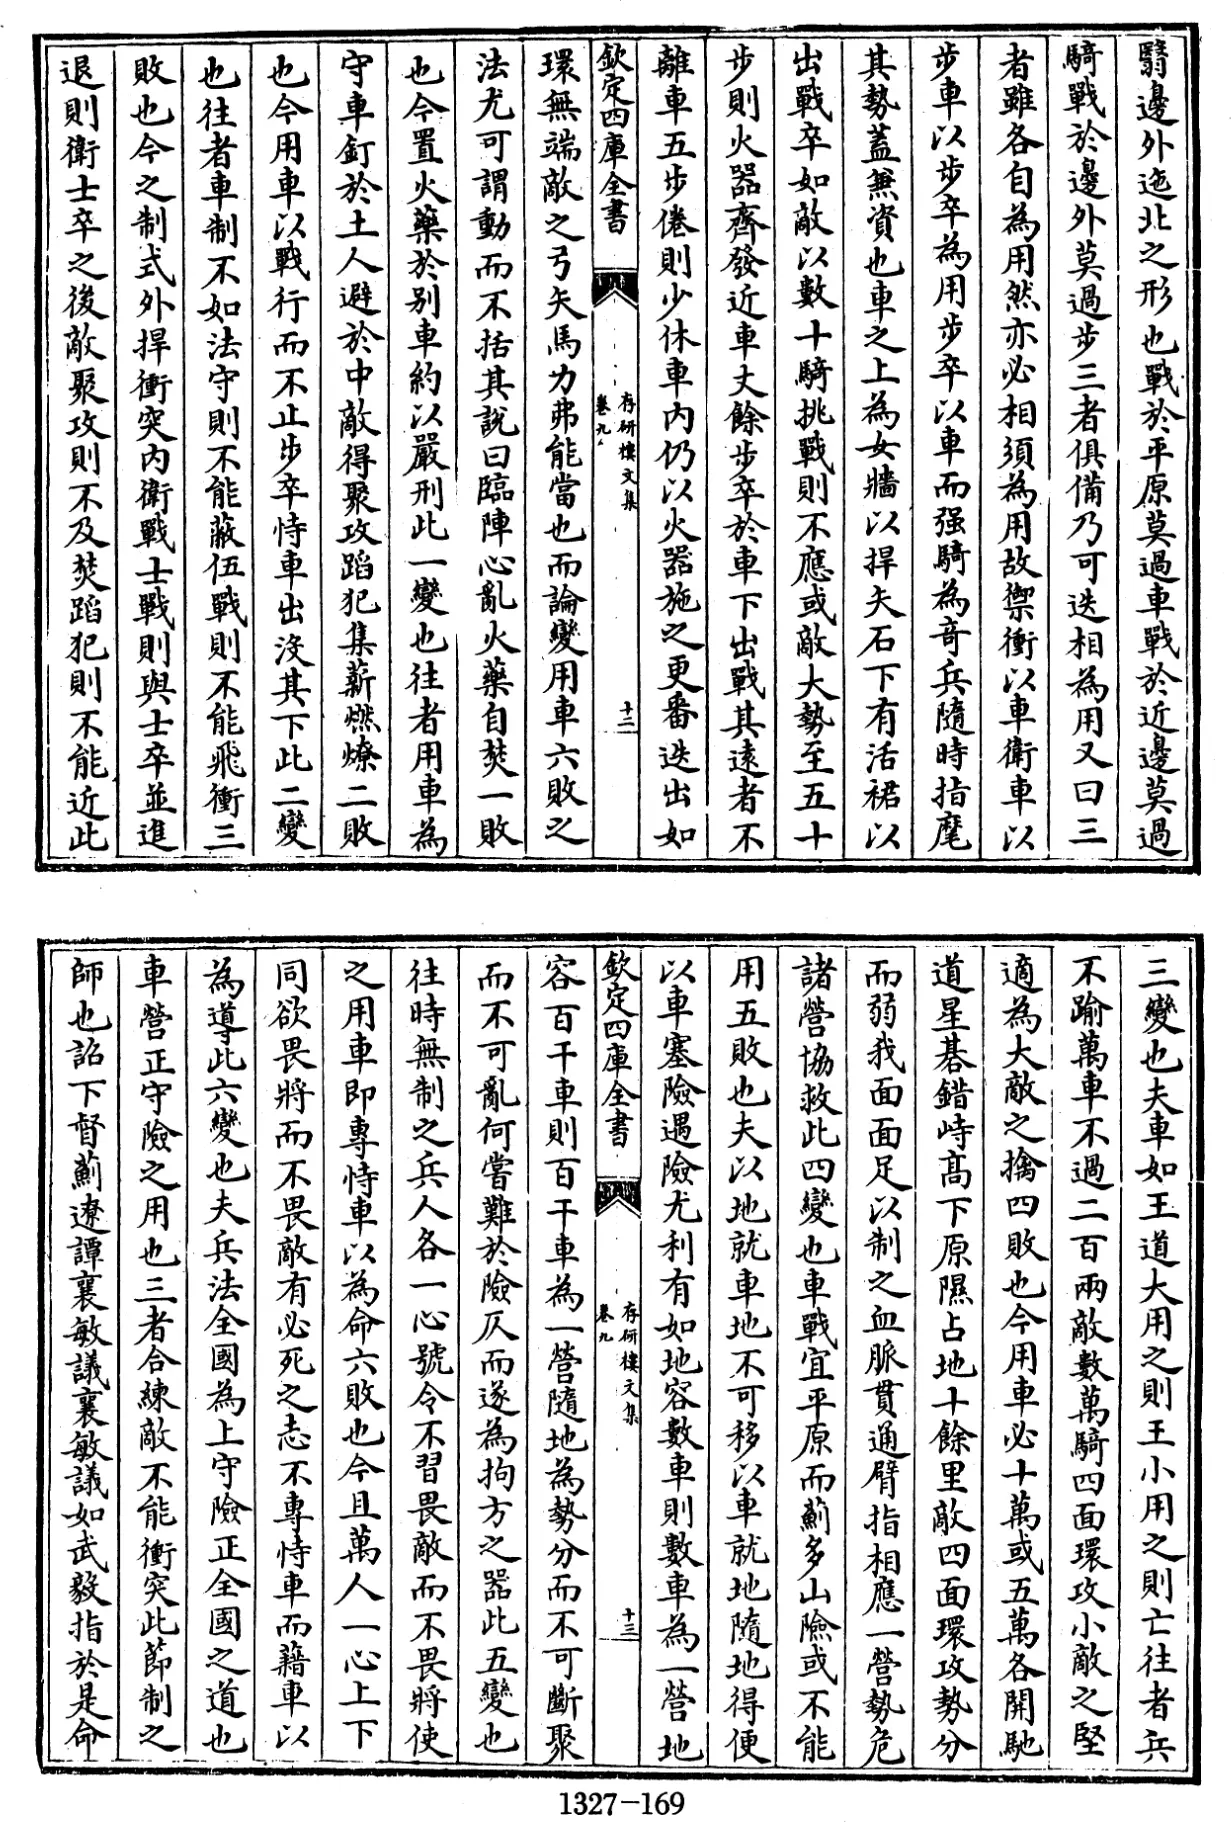 翳邊外迤北之形也戰於平原莫過車戰於近邊莫過
騎戰於邊外莫過步三者俱備乃可迭相為用又曰三
者雖各自為用然亦必相須為用故禦衝以車衛車以
步車以步卒為用步卒以車而强騎為竒兵隨時指麾
其勢蓋兼資也車之上為女牆以捍矢石下有活裙以
出戰卒如敵以數十騎挑戰則不應或敵大勢至五十
步則火器齊發近車丈餘步卒於車下出戰其遠者不
離車五步倦則少休車內仍以火器施之更番迭出如
欽定四庫全書
存研樓文集
卷九
十二
環無端敵之弓矢馬力弗能當也而論變用車六敗之
法尤可謂動而不括其說曰臨陣心亂火藥自焚一敗
也今置火藥於別車約以嚴刑此一變也往者用車為
守車釘於土人避於中敵得聚攻蹈犯集薪燃燎二敗
也今用車以戰行而不止步卒恃車出沒其下此二變
也往者車制不如法守則不能蔽伍戰則不能飛衝三
敗也今之制式外捍衝突內衛戰士戰則與士卒並進
退則衛士卒之後敵聚攻則不及焚蹈犯則不能近此
三變也夫車如王道大用之則王小用之則亡往者兵
不踰萬車不過二百兩敵數萬騎四面環攻小敵之堅
適為大敵之擒四敗也今用車必十萬或五萬各開馳
道星碁錯峙高下原隰占地十餘里敵四面環攻勢分
而弱我面面足以制之血脈貫通臂指相應一營勢危
諸營協救此四變也車戰宜平原而薊多山險或不能
用五敗也夫以地就車地不可移以車就地隨地得便
以車塞險遇險尤利有如地容數車則數車為一營地
欽定四庫全書
存研樓文集
卷九
十三
容百千車則百千車為一營隨地為勢分而不可斷聚
而不可亂何嘗難於險仄而遂為拘方之器此五變也
往時無制之兵人各一心號令不習畏敵而不畏將使
之用車即專恃車以為命六敗也今且萬人一心上下
同欲畏將而不畏敵有必死之志不專恃車而藉車以
為導此六變也夫兵法全國為上守險正全國之道也
車營正守險之用也三者合練敵不能衝突此節制之
師也詔下督薊遼譚襄敏議襄敏議如武毅指於是命
1327-169